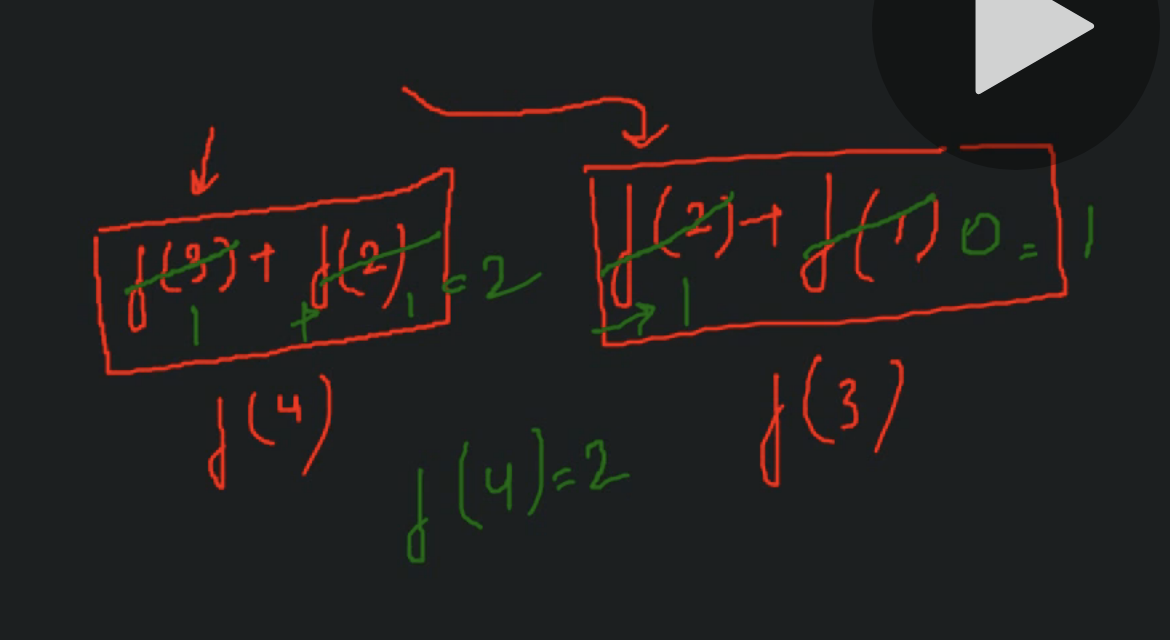 f(3) + f(2) = 2
1 + 1
f(4)
f(2) + f(1) 0 = 1
1
f(3)
f(4) = 2